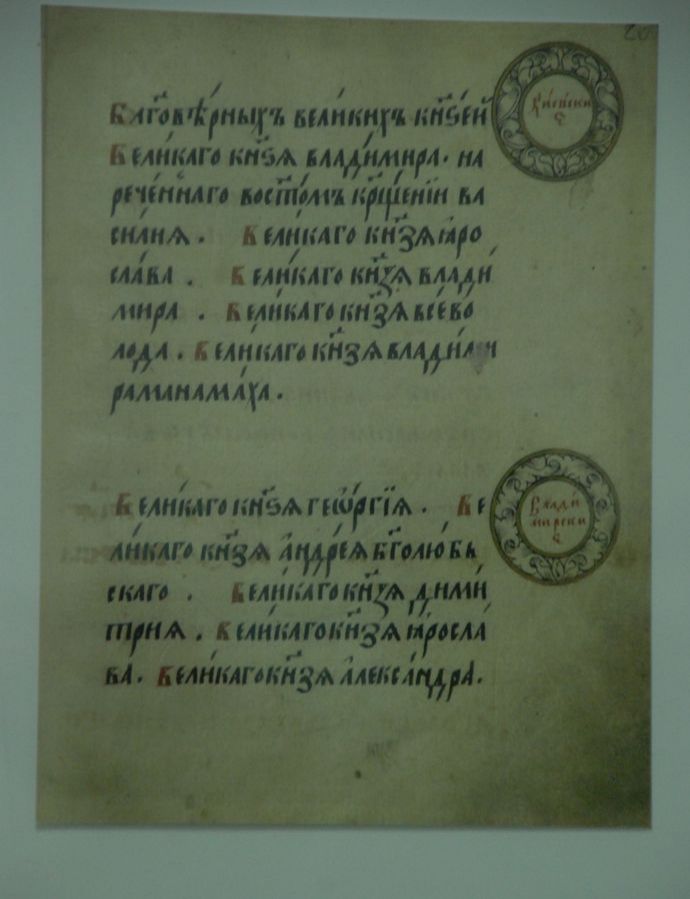 Благовѣрныхъ великихъ кнѕей
Великаго кнѕя владимира. на
реченнаго востомъ крщении ва
силия. Великаго кнзя яро
слава. Великаго кнзя влади
мира. Великаго кнзя всево
лода. Великаго кнзя влади
раманамаха.
Киевски
е
Великаго кнѕя геѡргїя. Ве
ликаго кнзя андрея бголюбь
скаго. Великаго кнзя дими
трия. Великаго кнзя яросла
ва. Великаго кнзя александра.
Влади
мирски
е